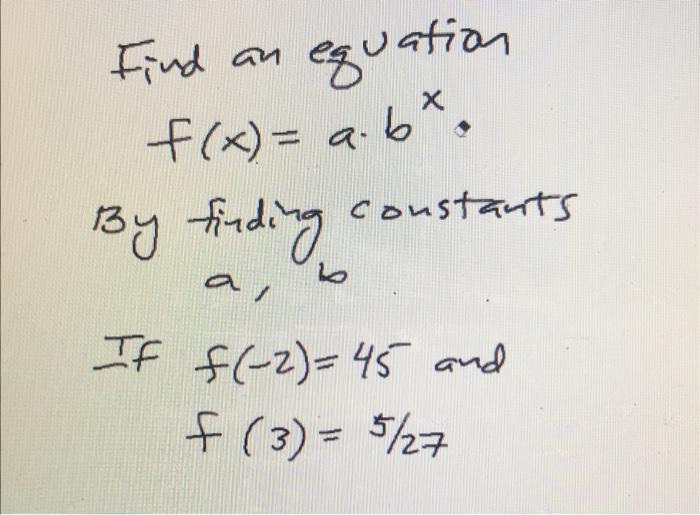 Find an equation
f(x) = a·b^x.
By finding constants
a, b
If f(-2) = 45 and
f(3) = 5/27